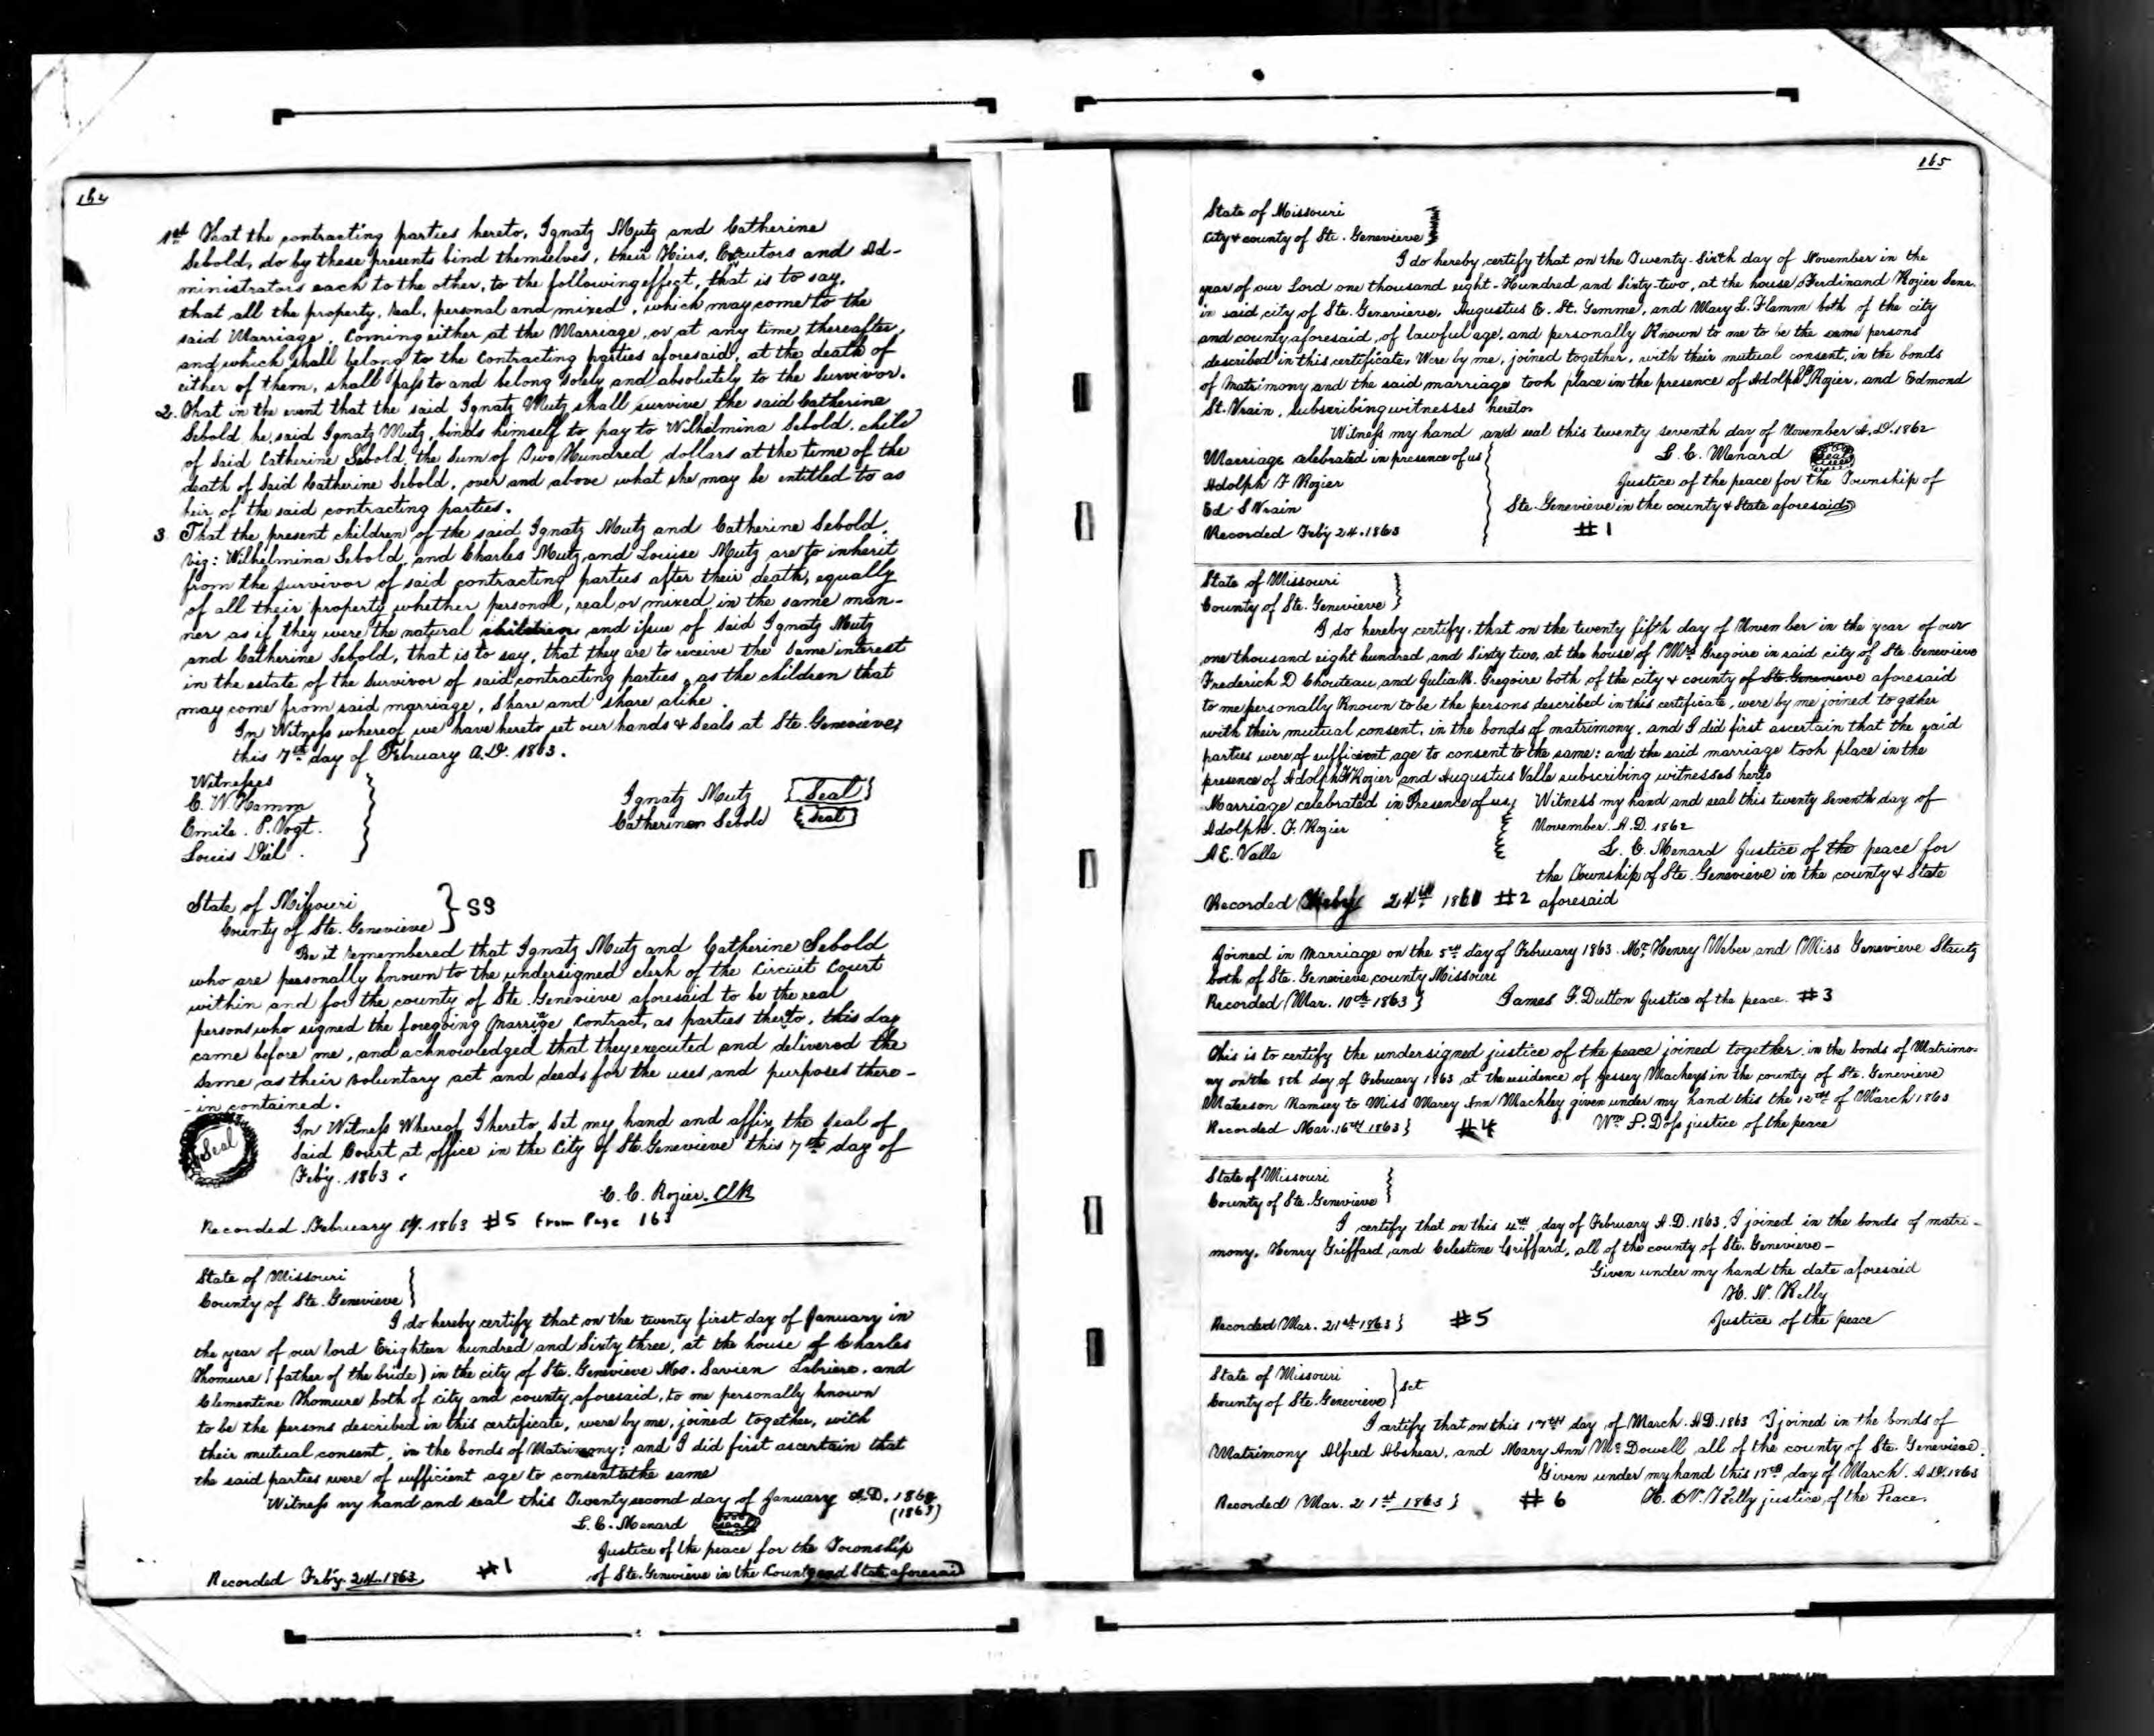 164
1st That the contracting parties hereto, Ignatz Mutz and Catherine
Sebold, do by these presents bind themselves, their Heirs, Executors and Ad-
ministrators each to the other, to the following effect, that is to say,
that all the property, real, personal and mixed, which may come to the
said Marriage, Coming either at the Marriage, or at any time, thereafter,
and which shall belong to the Contracting parties aforesaid, at the death of
either of them, shall pass to and belong solely and absolutely to the Survivor.
2. That in the event that the said Ignatz Mutz shall survive the said Catherine
Sebold, he, said Ignatz Mutz, binds himself to pay to Wilhelmina Sebold, child
of Said Catherine Sebold, the Sum of Two Hundred dollars at the time of the
death of Said Catherine Sebold, over and above what she may be entitled to as
heir of the said contracting parties.
3 That the present children of the said Ignatz Mutz and Catherine Sebold,
viz: Wilhelmina Sebold, and Charles Mutz and Louise Mutz are to inherit
from the survivor of said contracting parties after their death, equally
of all their property whether personal, real or mixed in the same man-
ner as if they were the natural children and issue of Said Ignatz Mutz
and Catherine Sebold, that is to say, that they are to receive the Same interest
in the estate of the Survivor of said contracting parties, as the children that
may come from said marriage, Share and share alike.
In Witness whereof we have hereto set our hands & Seals at Ste. Genevieve,
this 7th day of February A.D. 1863.
Witnesses
C. W. Hamm
Emile. P. Vogt.
Louis Diel.
Ignatz Mutz Seal
Catherine Sebold Seal
State of Missouri
County of Ste. Genevieve } SS
Be it remembered that Ignatz Mutz and Catherine Sebold
who are personally known to the undersigned clerk of the Circuit Court
within and for the county of Ste. Genevieve aforesaid to be the real
persons who signed the foregoing Marriage Contract, as parties thereto, this day
came before me, and acknowledged that they executed and delivered the
Same as their voluntary act and deeds for the uses and purposes there-
-in contained.
Seal
In Witness Whereof I hereto Set my hand and affix the Seal of
Said Court at office in the City of Ste. Genevieve this 7th day of
Feb'y. 1863.
C. C. Rozier. Clk
Recorded February 14. 1863 #5 From Page 163
State of Missouri
County of Ste. Genevieve }
I do hereby certify that on the twenty first day of January in
the year of our lord Erighteen hundred and Sixty three, at the house of Charles
Thomure (father of the bride) in the city of Ste. Genevieve Mo. Savien Labriere, and
Clementine Thomure both of city and county aforesaid, to me personally known
to be the persons described in this certificate, were by me, joined together, with
their mutual consent, in the bonds of Matrimony; and I did first ascertain that
the said parties were of sufficient age to consent to the same
Witness my hand and seal this Twenty second day of January A.D. 1862
(1863)
L. C. Menard Seal
Justice of the peace for the Township
of Ste. Genevieve in the County and State aforesaid
Recorded Feb'y. 24. 1863 #1
165
State of Missouri
City & county of Ste. Genevieve }
I do hereby certify that on the Twenty-Sixth day of November in the
year of our Lord one thousand eight-Hundred and Sixty-two, at the house Ferdinand Rozier Senr.
in said city of Ste. Genevieve, Augustus E. St. Gemme, and Mary L. Flamm both of the city
and county, aforesaid, of lawful age, and personally Known to me to be the same persons
described in this certificate, Were by me, joined together, with their mutual consent, in the bonds
of Matrimony and the said marriage took place in the presence of Adolph Rozier, and Edmond
St. Vrain, Subscribing witnesses hereto.
Witness my hand and seal this twenty seventh day of November A.D. 1862
Marriage celebrated in presence of us
Adolph F Rozier
Ed. S Vrain
Recorded Feby 24. 1863
L. C. Menard Seal
Justice of the peace for the Township of
Ste Genevieve in the county & State aforesaid
#1
State of Missouri
County of Ste. Genevieve }
I do hereby certify, that on the twenty fifth day of November in the year of our
one thousand eight hundred and Sixty two, at the house of Mrs Gregoire in said city of Ste Genevieve
Frederick D Chouteau, and Julia M. Gregoire both of the city & county of Ste. Genevieve aforesaid
to me personally Known to be the persons described in this certificate, were by me joined to gather
with their mutual consent, in the bonds of matrimony, and I did first ascertain that the said
parties were of sufficient age to consent to the same: and the said marriage took place in the
presence of Adolph F Rozier and Augustus Valle subscribing witnesses herto
Marriage celebrated in Presence of us, Witness my hand and seal this twenty Seventh day of
Adolph. F. Rozier November. A.D. 1862
A E. Valle L. C. Menard Justice of the peace for
the Township of Ste. Genevieve in the county & State
Recorded Feby 24th 1861 #2 aforesaid
Joined in Marriage on the 5th day of February 1863. Mr. Henry Weber and Miss Genevieve Stautz
both of Ste. Genevieve county Missouri
Recorded Mar. 10th 1863 } James F. Dutton Justice of the peace. #3
This is to certify the undersigned justice of the peace joined together, in the bonds of Matrimo-
ny on the 8th day of February 1863 at the residence of Jessey Mackeys in the county of Ste. Genevieve
Materson Ramsey to Miss Marey Ann Mackley given under my hand this the 12th of March 1863
Recorded Mar. 16th 1863 } #4 Wm P. Doss justice of the peace
State of Missouri
County of Ste. Genevieve }
I certify that on this 4th day of February A.D. 1863, I joined in the bonds of matri-
mony. Henry Griffard, and Celestine Griffard, all of the county of Ste. Genevieve-
Given under my hand the date aforesaid
H. N. Kelly
Recorded Mar. 21st 1863 } #5 Justice of the peace
State of Missouri
County of Ste. Genevieve } Sct
I certify that on this 17th day of March. A.D. 1863 I joined in the bonds of
Matrimony Alfred Abshear, and Mary Ann McDowell all of the county of Ste. Genevieve.
Given under my hand this 17th day of March. A.D. 1863
Recorded Mar. 21st 1863 } #6 H. N. Kelly justice of the Peace.